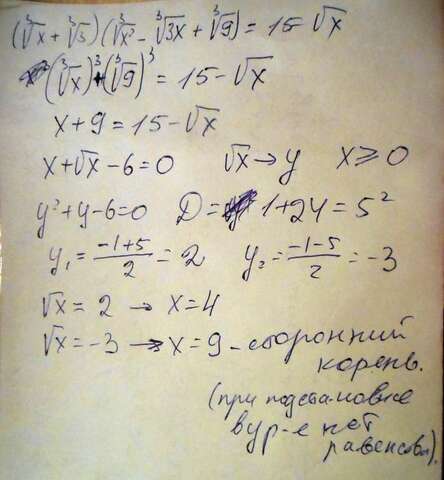 (∛x + ∛3)(∛x² - ∛3x + ∛9) = 15 - √x
(∛x)³ + (∛9)³ = 15 - √x
x + 9 = 15 - √x
x + √x - 6 = 0 √x → y x ⩾ 0
y² + y - 6 = 0 D = 1 + 24 = 5²
y₁ = (-1+5)/2 = 2 y₂ = (-1-5)/2 = -3
√x = 2 → x = 4
√x = -3 → x = 9 - сторонний
корень.
(при подстановке
в ур-е нет
равенства).